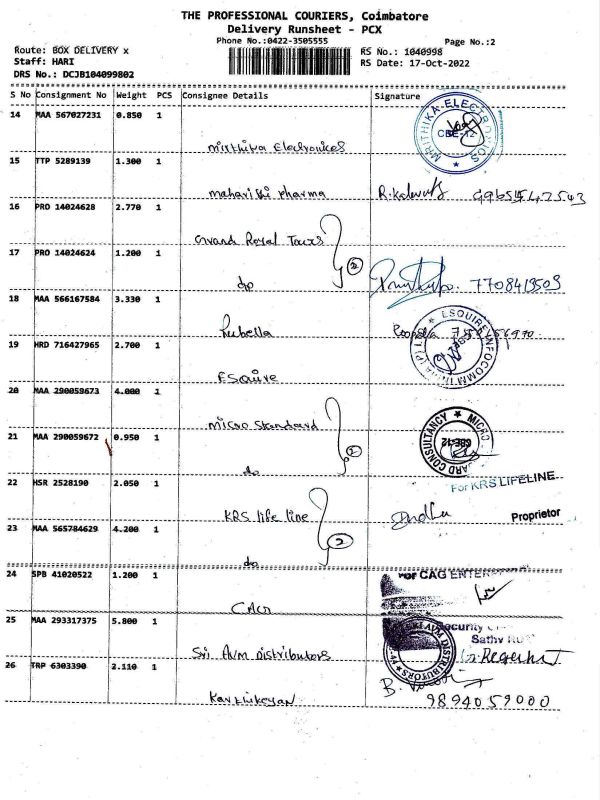 THE PROFESSIONAL COURIERS, Coimbatore
Delivery Runsheet - PCX
Phone No.:0422-3505555
Page No.:2
Route: BOX DELIVERY x
RS No.: 1040998
Staff: HARI
RS Date: 17-Oct-2022
DRS No.: DCJB104099802
S No Consignment No Weight PCS Consignee Details Signature
14 MAA 567027231 0.850 1
MRITHIKA ELECTRONICS
CBE-12
Mrithika Electronices
15 TTP 5289139 1.300 1
maharishi pharma
16 PRO 14024628 2.770 1
Grand Royal Tours
2
17 PRO 14024624 1.200 1
do 7708419503
18 MAA 566167584 3.330 1
Rubella
19 HRD 716427965 2.700 1
Esquire
20 MAA 290059673 4.000 1
micro Standard
2
21 MAA 290059672 0.950 1
do
CBE-12
22 HSR 2528190 2.050 1
For KRS LIFELINE
KRS life line Indhu Proprietor
2
23 MAA 565784629 4.200 1
do
24 SPB 41020522 1.200 1
For CAG
CAG
25 MAA 293317375 5.800 1
Sri AVM Distributors
26 TRP 6303390 2.110 1
Karthikeyan 9894059000